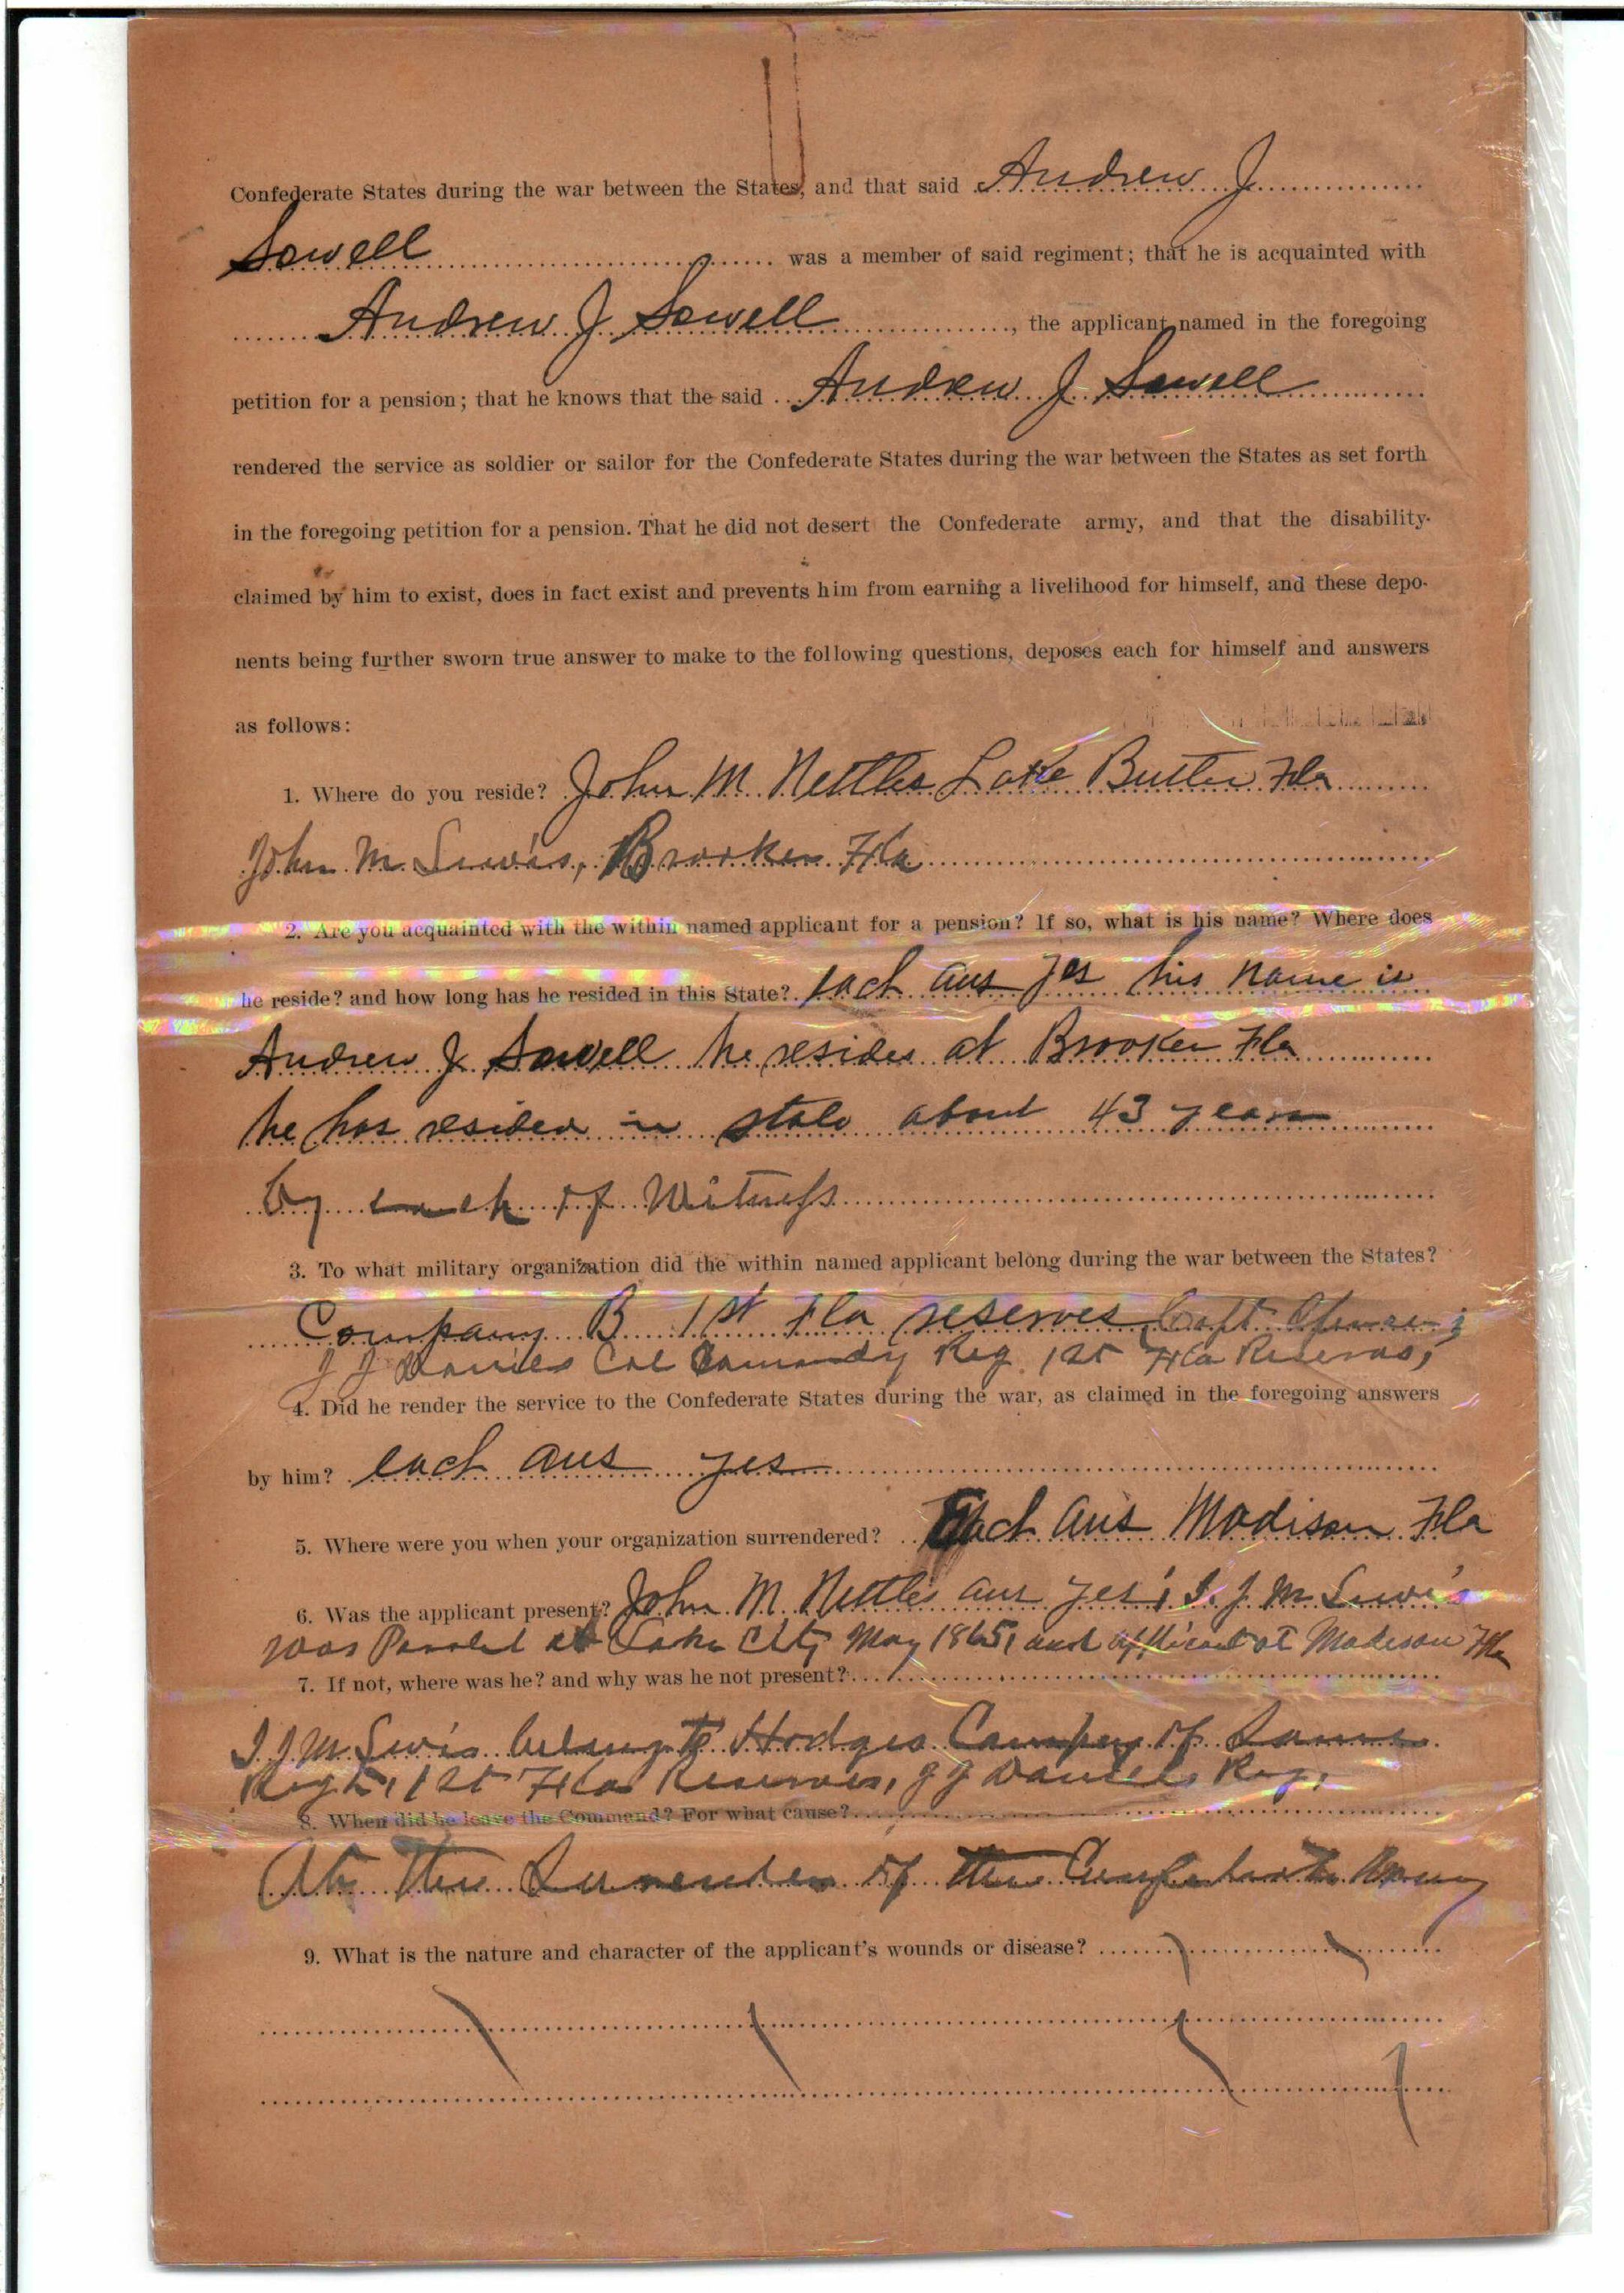 Confederate States during the war between the States, and that said Andrew J
Sowell was a member of said regiment; that he is acquainted with
Andrew J Sowell, the applicant named in the foregoing
petition for a pension; that he knows that the said Andrew J Sowell
rendered the service as soldier or sailor for the Confederate States during the war between the States as set forth
in the foregoing petition for a pension. That he did not desert the Confederate army, and that the disability
claimed by him to exist, does in fact exist and prevents him from earning a livelihood for himself, and these depo-
nents being further sworn true answer to make to the following questions, deposes each for himself and answers
as follows:
1. Where do you reside? John M. Nettles Lake Butler Fla
John M, Brooker Fla
2. Are you acquainted with the within named applicant for a pension? If so, what is his name? Where does
he reside? and how long has he resided in this State? each ans yes his name is
Andrew J Sowell he resides at Brooker Fla
he has resided in state about 43 years
by each of Witness
3. To what military organization did the within named applicant belong during the war between the States?
Company B 1st Fla reserves Capt
J J Daniels Col Reg 1st Fla Reserves,
4. Did he render the service to the Confederate States during the war, as claimed in the foregoing answers
by him? each ans yes
5. Where were you when your organization surrendered? Each ans Madison Fla
6. Was the applicant present? John M. Nettles ans yes; I. J M
was Paroled at Lake City May 1865, and at Madison Fla
7. If not, where was he? and why was he not present?
I J M belong to Hodges Company of Same
Regt, 1st Fla Reserves, J J Daniels Reg,
8. When did he leave the Command? For what cause?
At the Surrender of the Confederate Army
9. What is the nature and character of the applicant's wounds or disease?